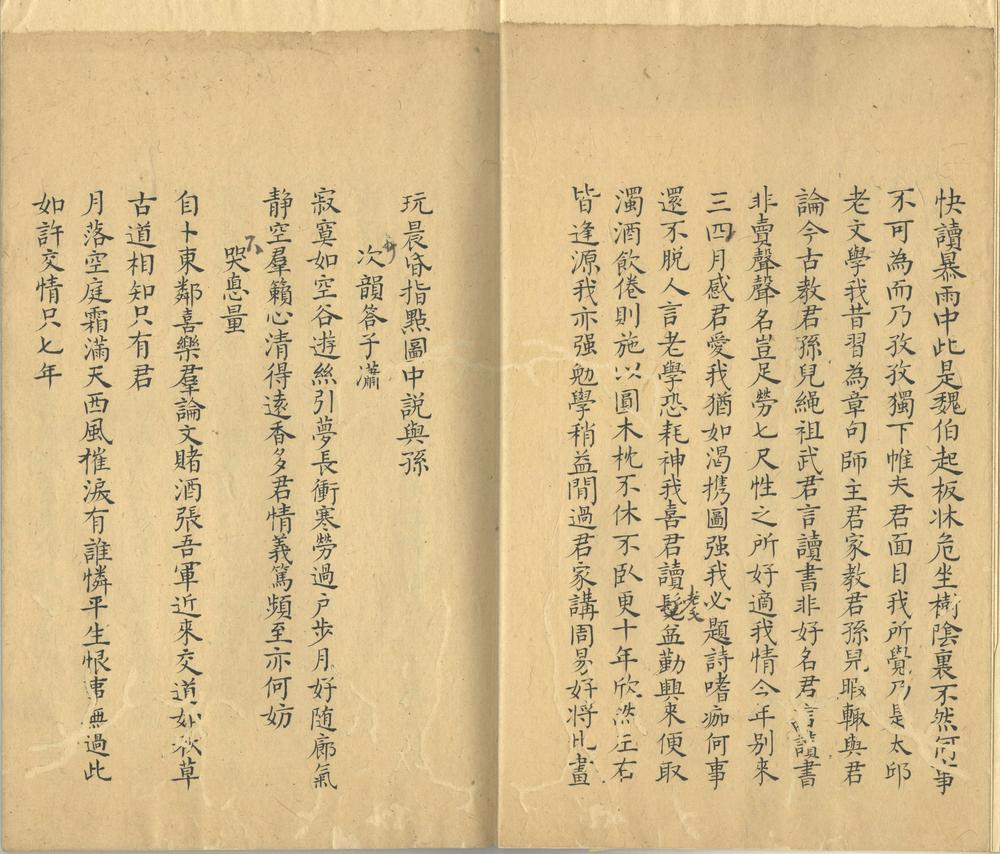 快讀暴雨中此是魏伯起板牀危坐樹陰裏不然何事
不可為而乃孜孜獨下帷夫君面目我所覺乃是太邱
老文學我昔習為章句師主君家教君孫兒暇輙與君
論今古教君孫兒繩祖武君言讀書非好名君言讀書
非賣聲聲名豈足勞七尺性之所好適我情今年别來
三四月感君愛我猶如渴携圖强我必題詩嗜痂何事
還不脱人言老學恐耗神我喜君讀老矣益勤興來便取
濁酒飲倦則施以圓木枕不休不卧更十年欣然左右
皆逢源我亦强勉學稍益閒過君家講周易好将此畫
玩晨昏指點圖中説與孫
次韻答子瀟
寂寞如空谷遊絲引夢長衝寒勞過户步月好随廊氣
静空羣籟心清得遠香多君情義篤頻至亦何妨
哭恴量
自卜東鄰喜樂羣論文賭酒張吾軍近來交道如秋草
古道相知只有君
月落空庭霜滿天西風摧淚有誰憐平生恨事無過此
如許交情只七年